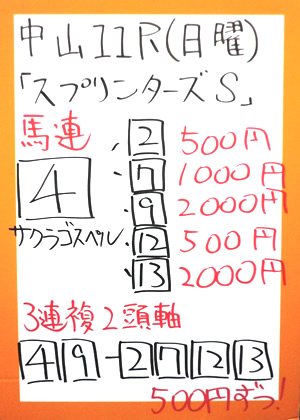 中山11R(日曜)
「スプリンターズS」
馬連
2 500円
4 7 1000円
9 2000円
サクラゴスペル 12 500円
13 2000円
3連複2頭軸
4 9 - 2 7 12 13
500円ずつ!